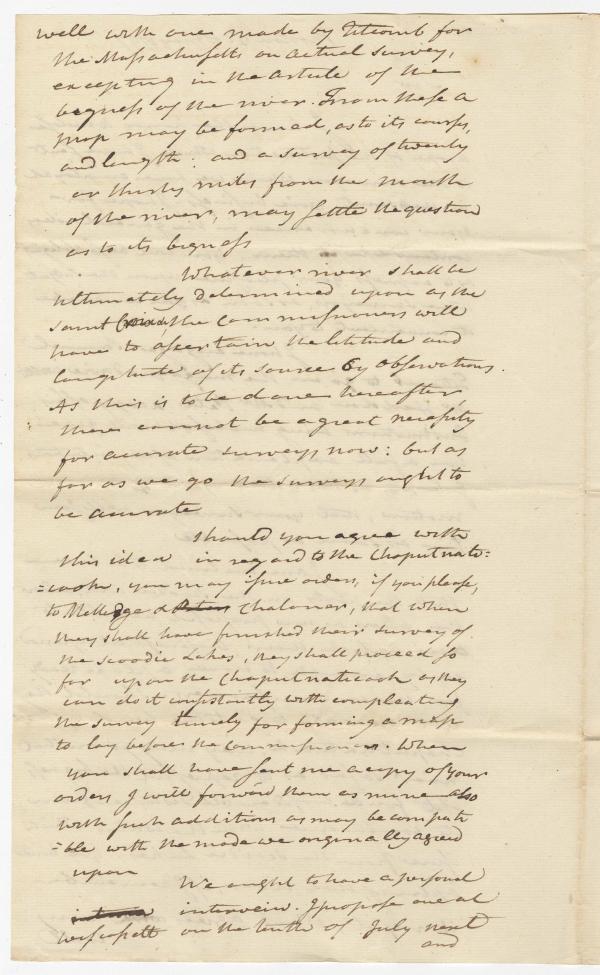 well with one made by Titcomb for
the Massachusetts on actual survey,
excepting in the article of the
begness of the river. From these a
map may be formed, as to its courses,
and length: and a survey of twenty
or thirty miles from the mouth
of the river, may settle the question
as to its begness
Whatever river shall be
ultimately determined upon as the
saint Croix, the commissioners will
have to ascertain the latitude and
longitude of its source by observations.
As this is to be done hereafter,
there cannot be a great necessity
for accurate surveys now: but as
far as we go the surveys ought to
be accurate
should you agree with
this idea in regard to the Chaputnate=
=cook, you may issue orders, if you please,
to Melledge & Chaloner, that when
they shall have finished their survey of
the scoodic Lakes, they shall proceed so
far upon the Chaputnatecook as they
can do it consistantly with compleating
the survey timely for forming a map
to lay before the commissioners. When
you shall have sent me a copy of your
orders I will forward them as mine also
with such additions as may be compate
=ble with the mode we originally agreed
upon
We ought to have a personal
interveiw. I propose one at
wiscasett on the tenth of July next
and